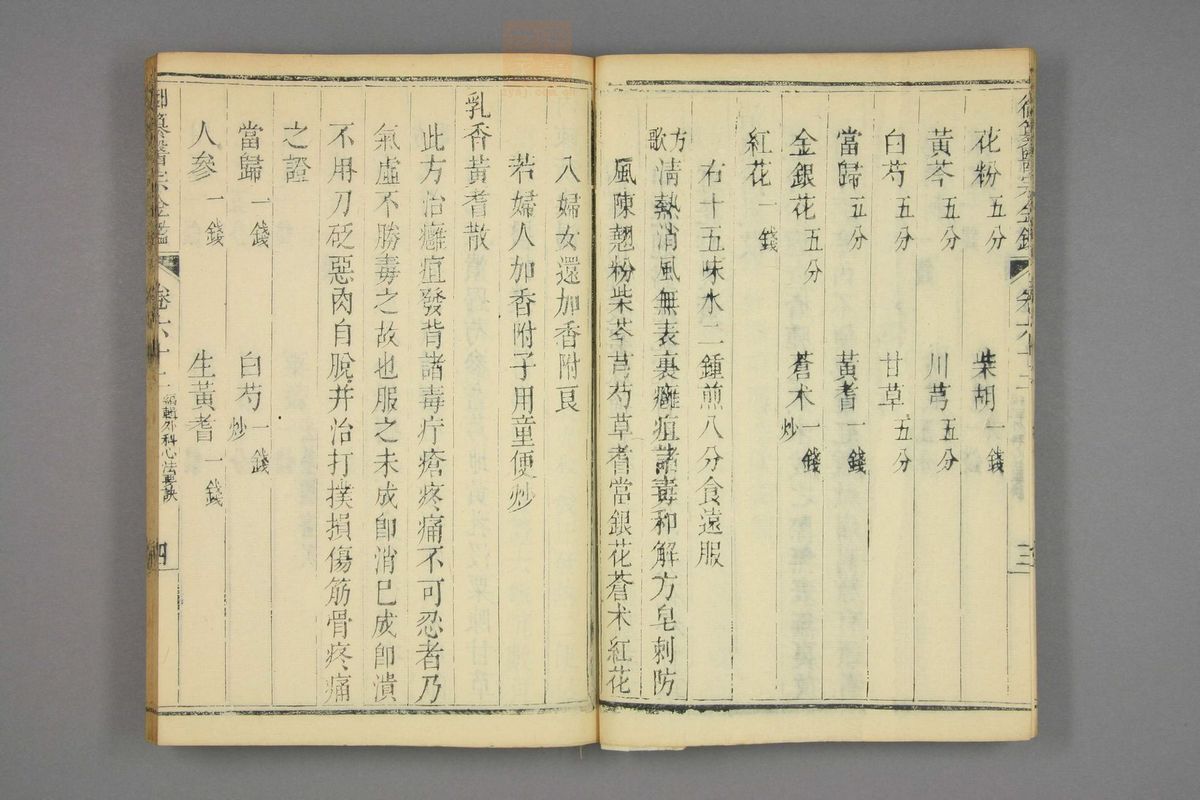 花粉五分 柴胡一錢
黃芩五分 川芎五分
白芍五分 甘草五分
當歸五分 黃耆一錢
金銀花五分 蒼术炒一錢
紅花一錢
右十五味水二鍾煎八分食遠服
方歌 清熱消風無表裏癰疽諸毒和解方皂刺防
風陳翹粉柴芩芎芍草耆當銀花蒼术紅花
入婦女還加香附良
若婦人加香附子用童便炒
乳香黃耆散
此方治癰疽發背諸毒疔瘡疼痛不可忍者乃
氣虛不勝毒之故也服之未成卽消已成卽潰
不用刀砭惡肉自脫并治打撲損傷筋骨疼痛
之證
當歸一錢 白芍炒一錢
人參一錢 生黃耆一錢
御纂醫宗金鑑 卷六十二 編輯外科心法要訣 四